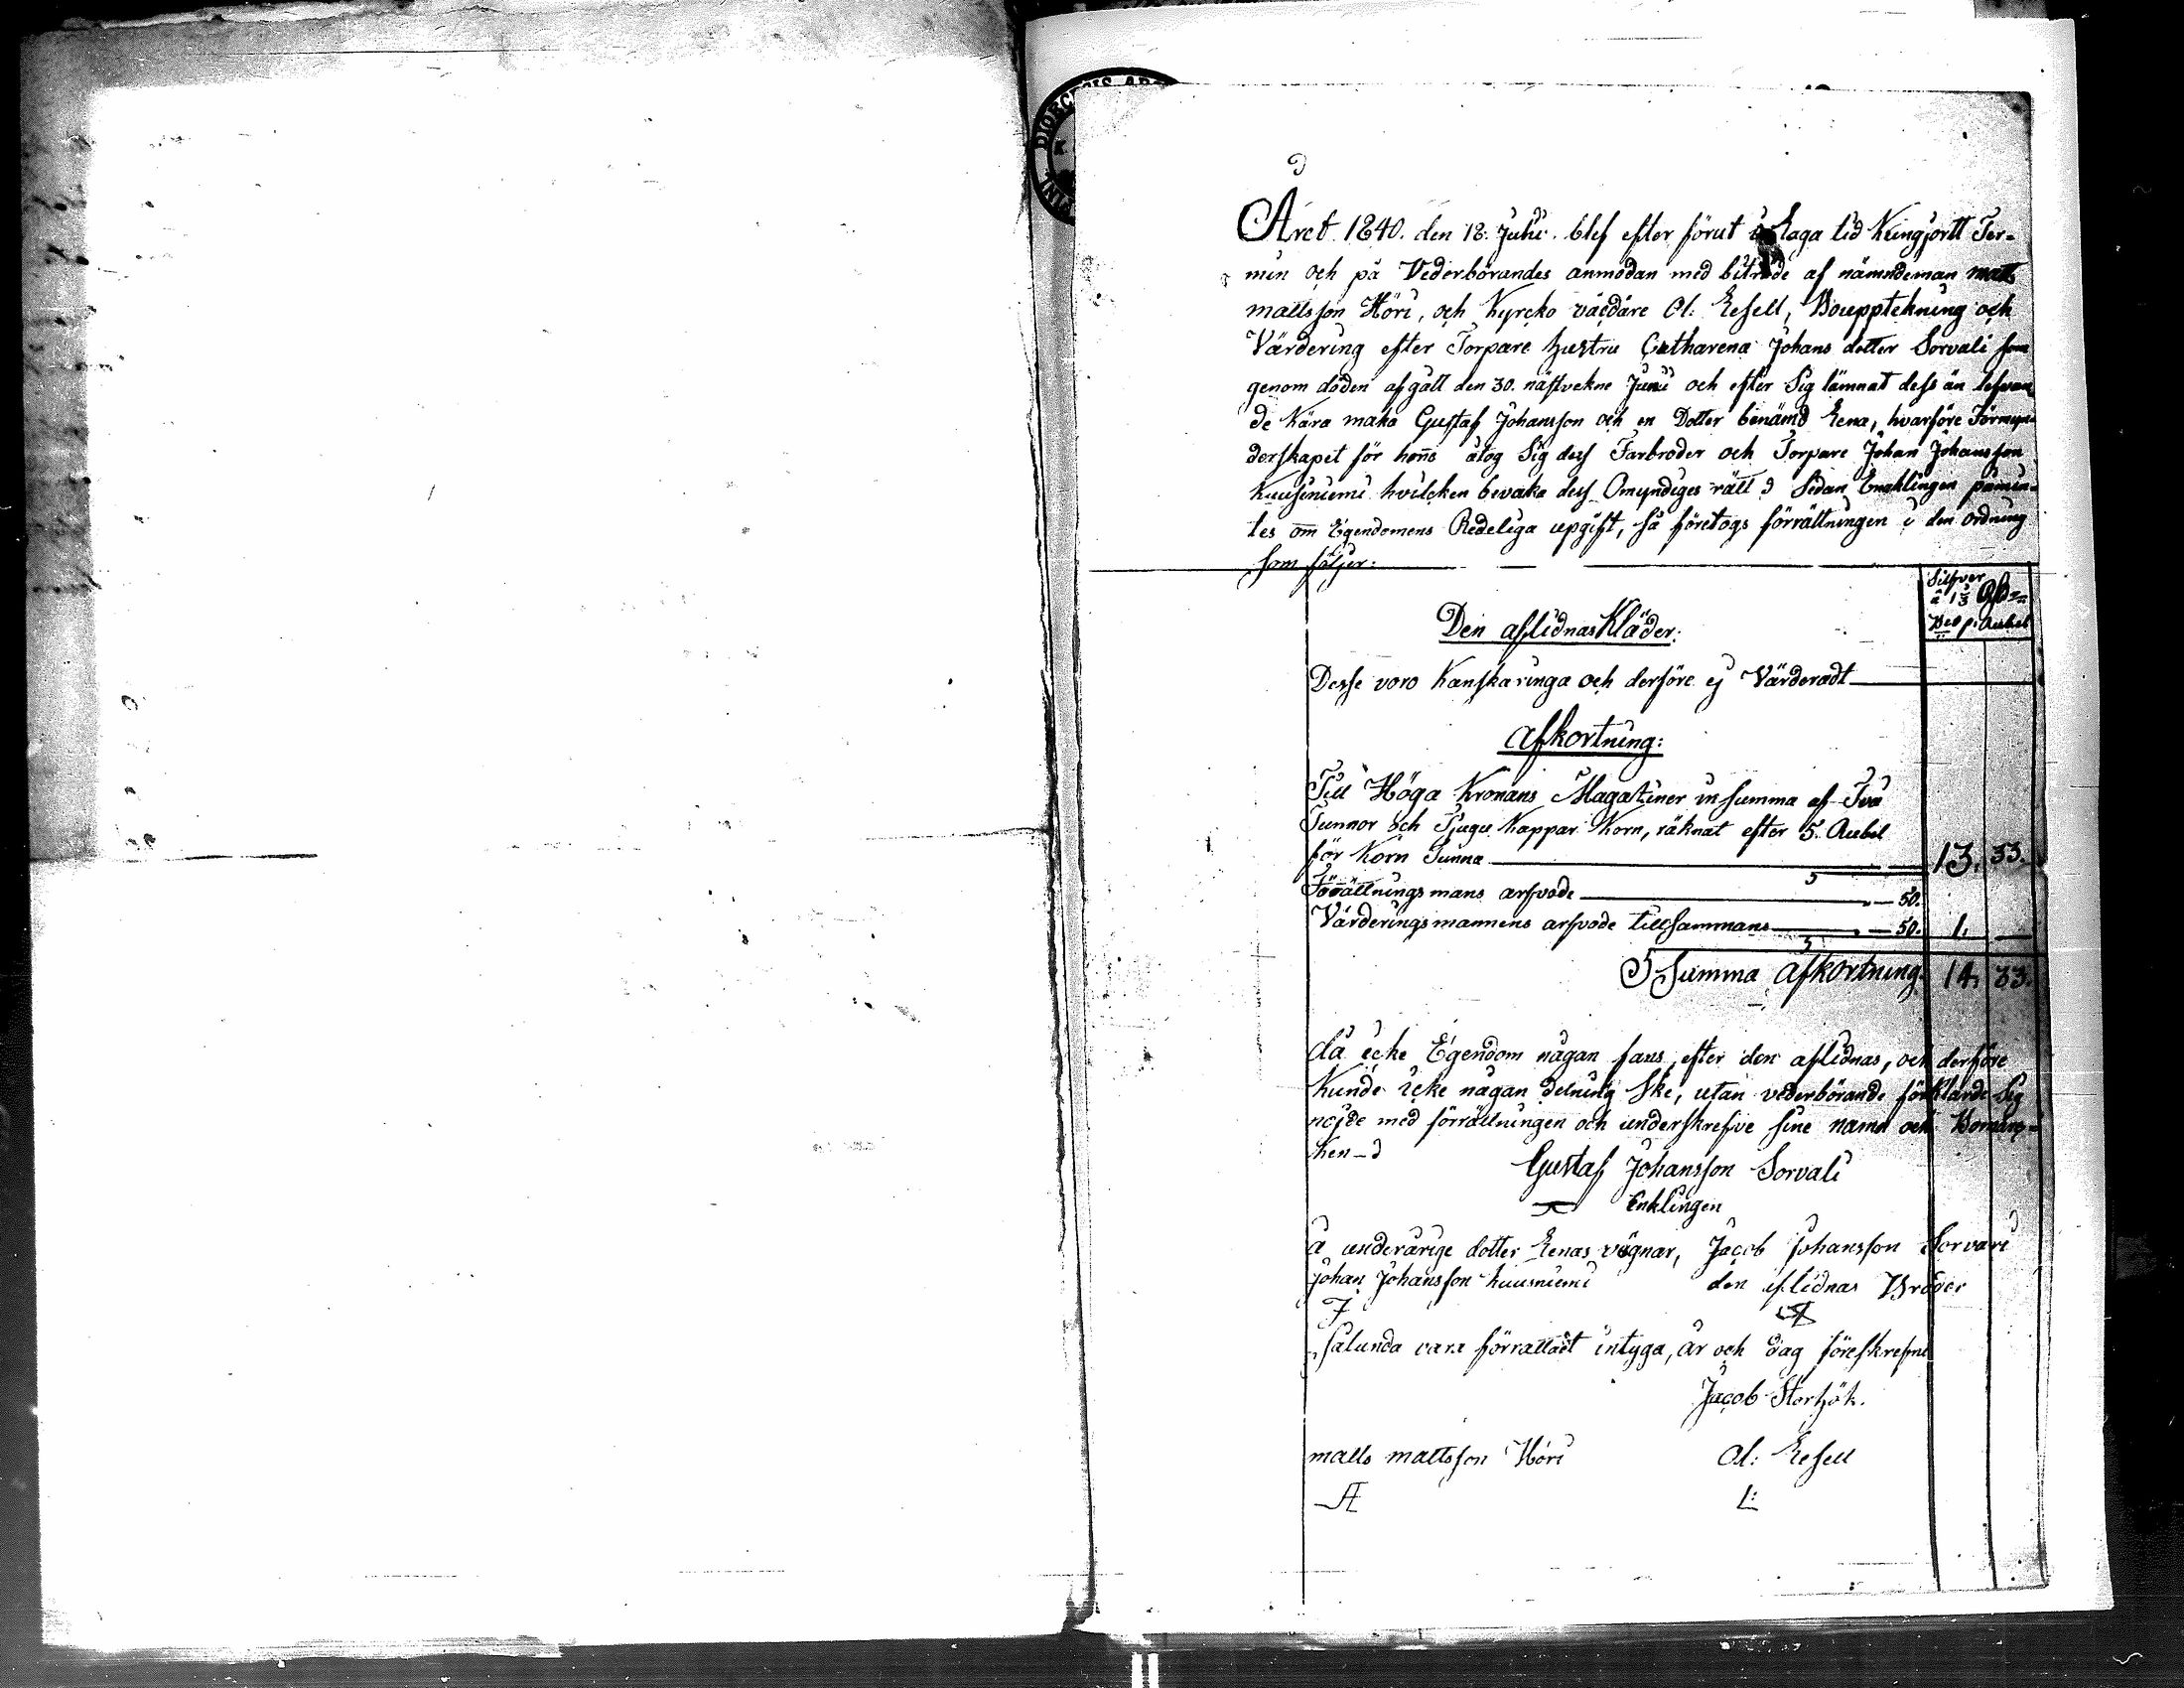 Året 1840. den 18. Julii. blef efter förut i Laga tid Kungjortt Ter-
min och på Vederbörandes anmodan med biträde af nämndeman matts
mattsson Höri, och Kyrcko värdare Ol: Lesell, Bouppteknung och
Värdering efter Torpare hustru Catharena Johans dotter Sorvali som
genom döden afgått den 30. nästvekne Junii och efter Sig lämnat dess än lefvan
de Kära maka Gustaf Johansson och en Dotter benämd Lena, hvarföre Förmyn-
derskapet för henne åtog Sig dess Farbroder och Torpare Johan Johansson
Kuusiniemi hvilcken bevaka dess Omyndiges rätt Sedan Encklingen påmin-
tes om Egendomens Redeliga upgift, så företogs förrättningen i den ordning
som följer:
Silfver
Rub
Den aflidnas Kläder:
Desse voro Kanska ringa och derföre ej Värderadt
Afkortning:
Till Höga Kronans Magatiner in summa af Två
Tunnor och Tjugu Kappar Korn, räknat efter 5. Rubel
för Korn Tunna 13. 33.
Förrättnings mans arfvode 50.
Värderingsmannens arfvode tillsammans 50. 1.
Summa Afkortning. 14. 33.
då icke Egendom någan fans, efter den aflidnas, och derföre
Kunde icke någan delning Ske, utan vederbörande förklarde Sig
nöjde med förrättningen och underskrefve sine namn och Bomärc-
ken
Gustaf Johansson Sorvali
Enklingen
å underårige dotter Lenas vägnar, Jacob Johansson Sorvari
Johan Johansson Kuusniemi den aflidnas Broder
Sålunda vara förrattadt intyga, år och dag föreskrefne
Jacob Storhök.
matts mattsson Höri Ol: Lesell
L: